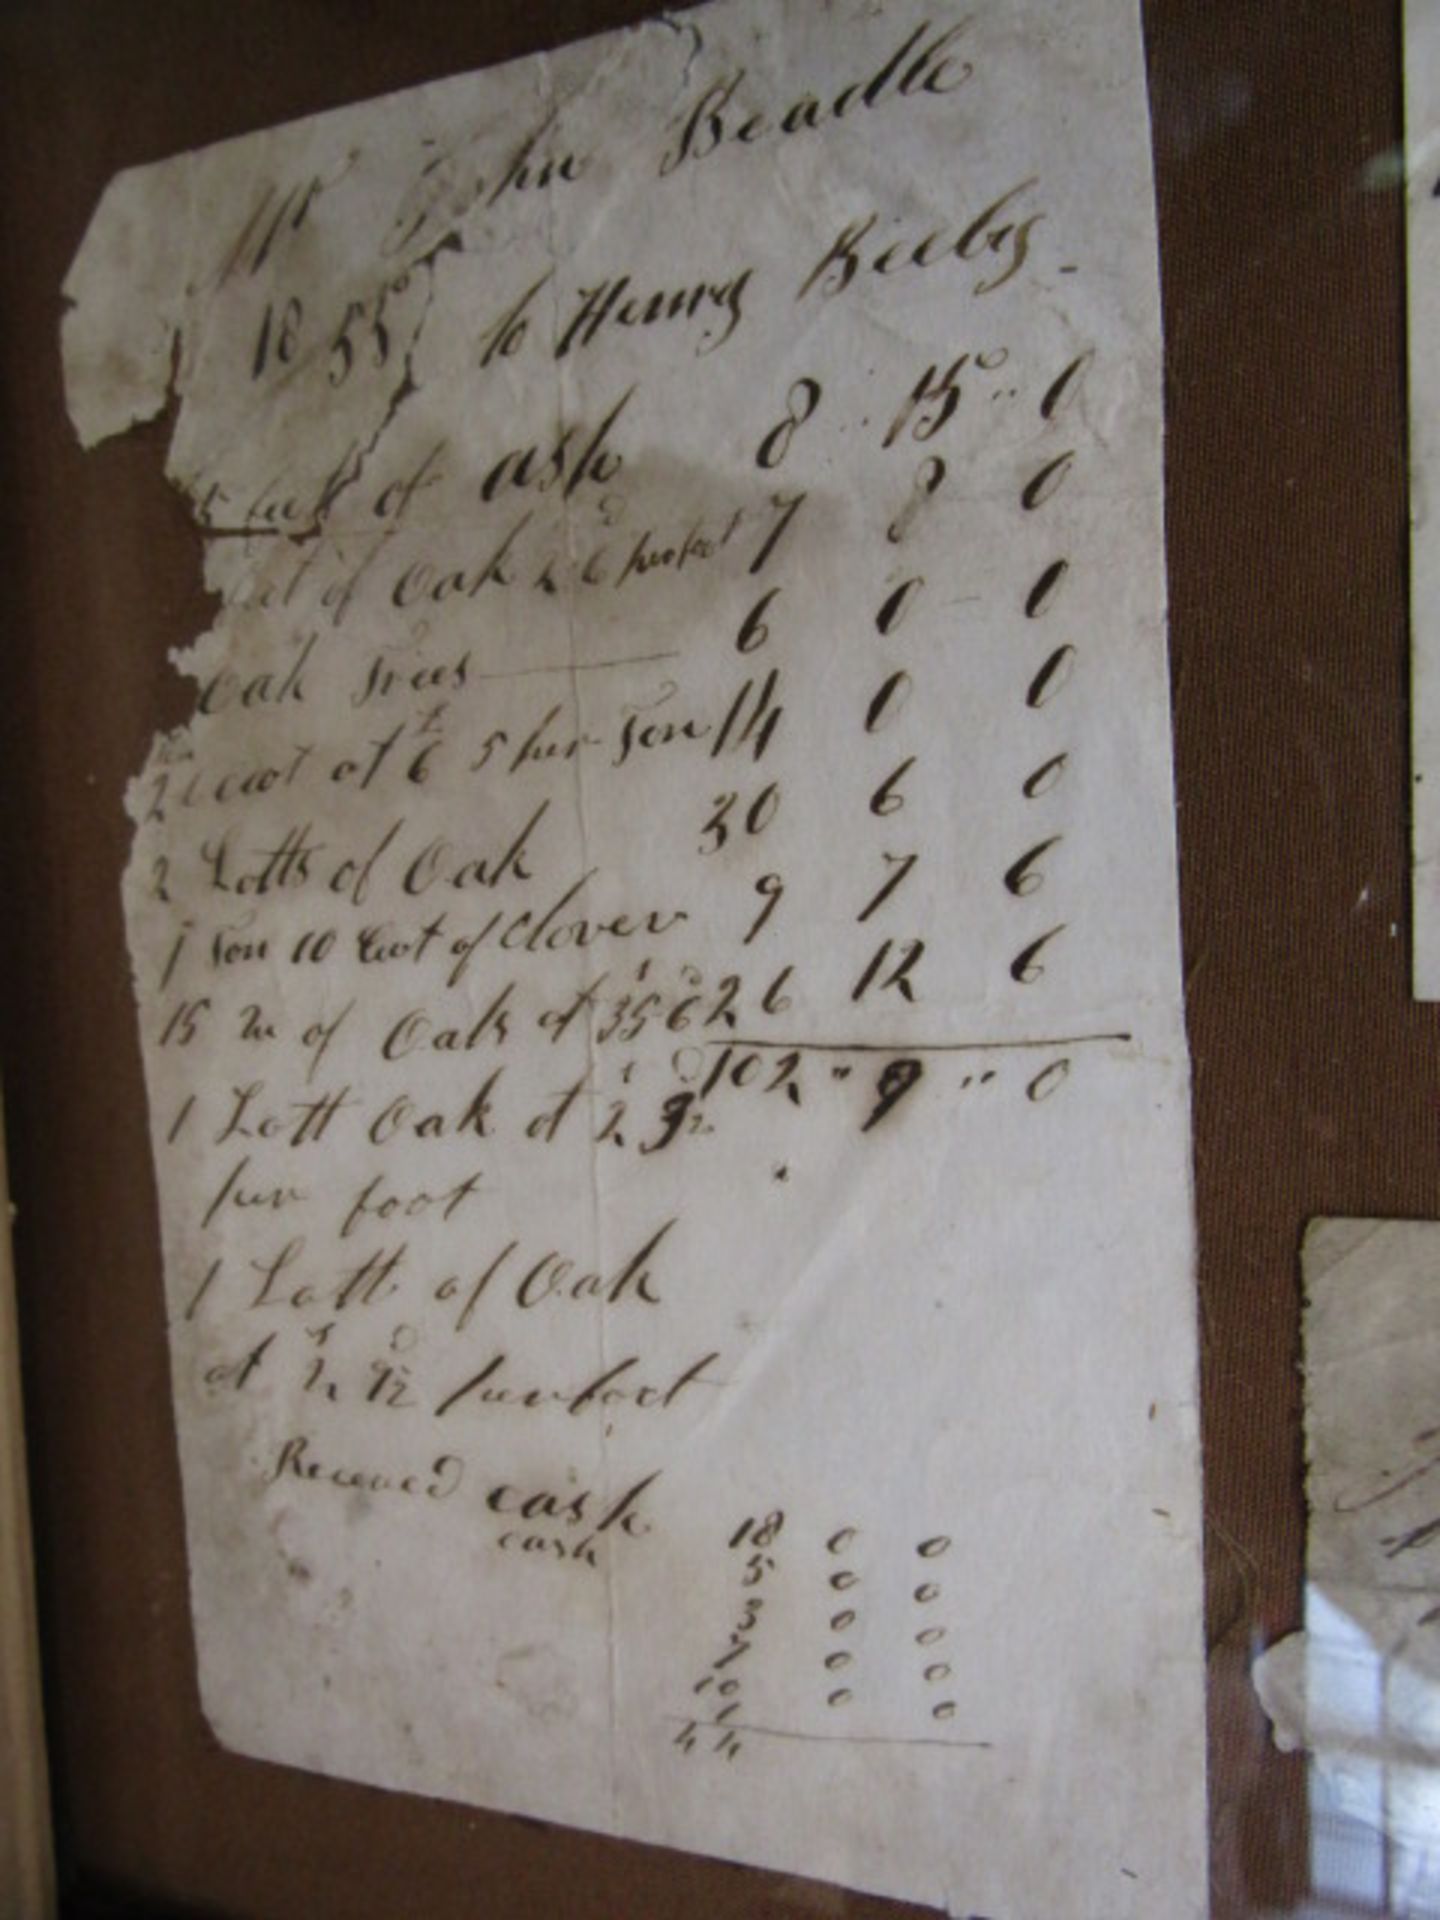 Mr John Beadle
1855 to Henry Beeby
feet of ash 8 .. 15 .. 0
feet of Oak 2 6 per foot 7 8 0
Oak Trees 6 0 0
2 cwt at 6 5 per Ton 14 0 0
2 Lotts of Oak 30 6 0
1 Ton 10 Cwt of Clover 9 7 6
15 of Oak at 35 6 26 12 6
1 Lott Oak at 2 102 " 9 " 0
per foot
1 Lott of Oak
at 2 9½ per foot
Received cash 18 0 0
cash 5 0 0
3 0 0
7 0 0
10 0 0
1
44